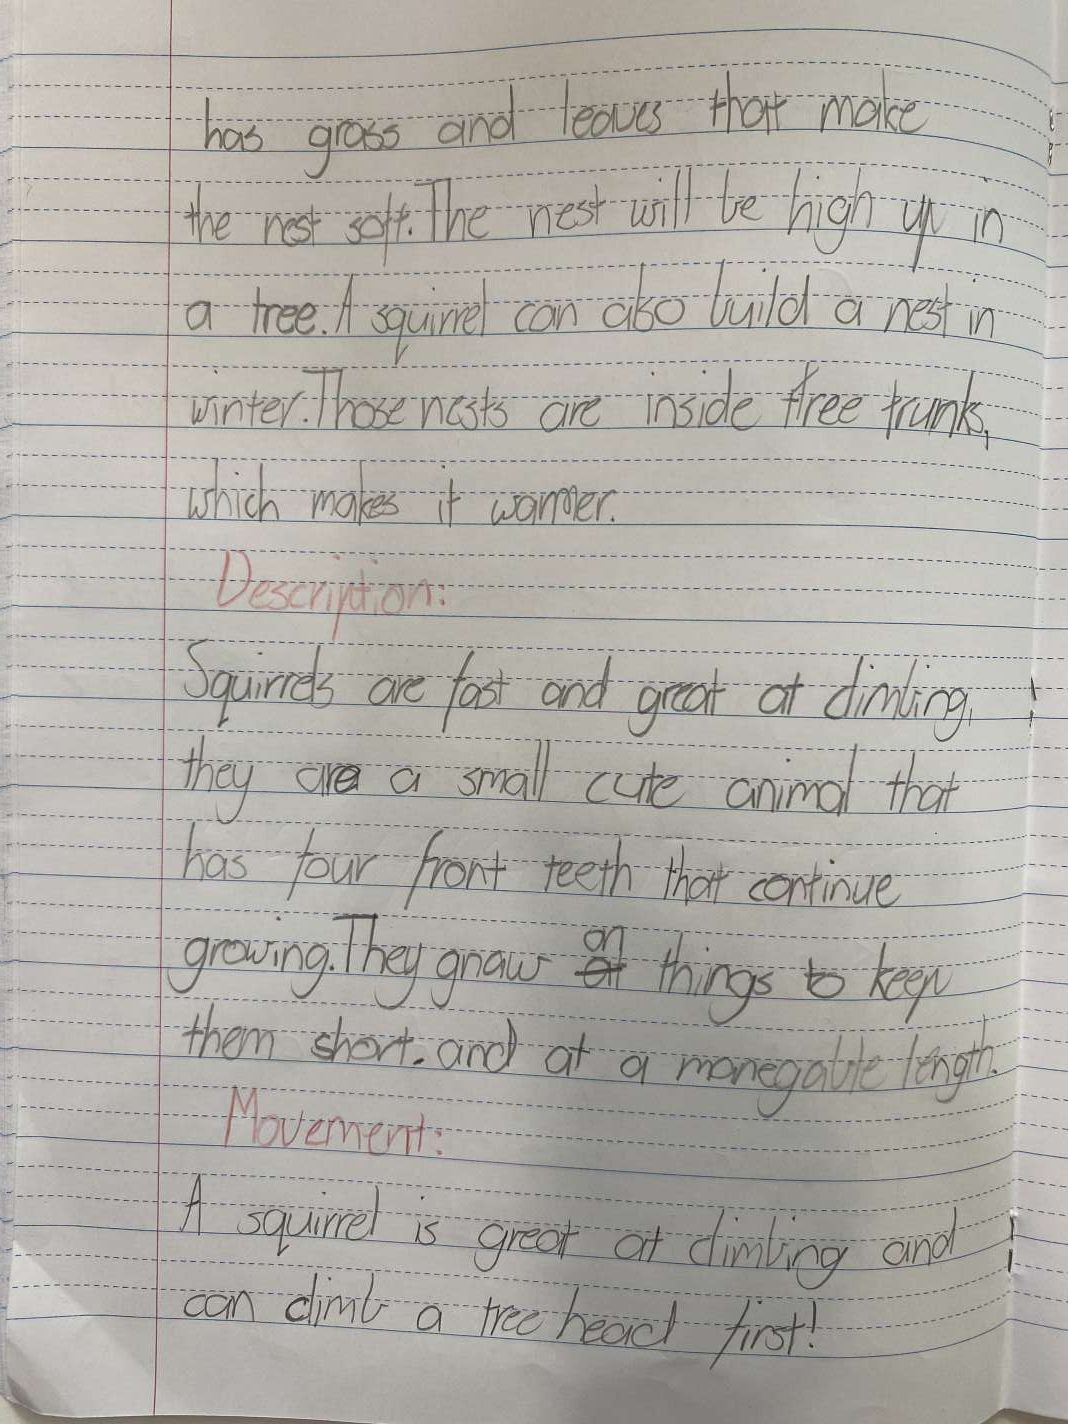 has grass and leaves that make
the nest soft. The nest will be high up in
a tree. A squirrel can also build a nest in
winter. Those nests are inside tree trunks,
which makes it warmer.
Description:
Squirrels are fast and great at climbing,
they are a small cute animal that
has four front teeth that continue
growing. They gnaw on things to keep
them short. and at a manegable length.
Movement:
A squirrel is great at climbing and
can climb a tree head first!